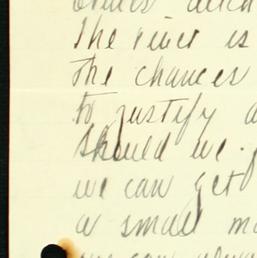 The river is
The chances
to justify a
should we
we can get
a small